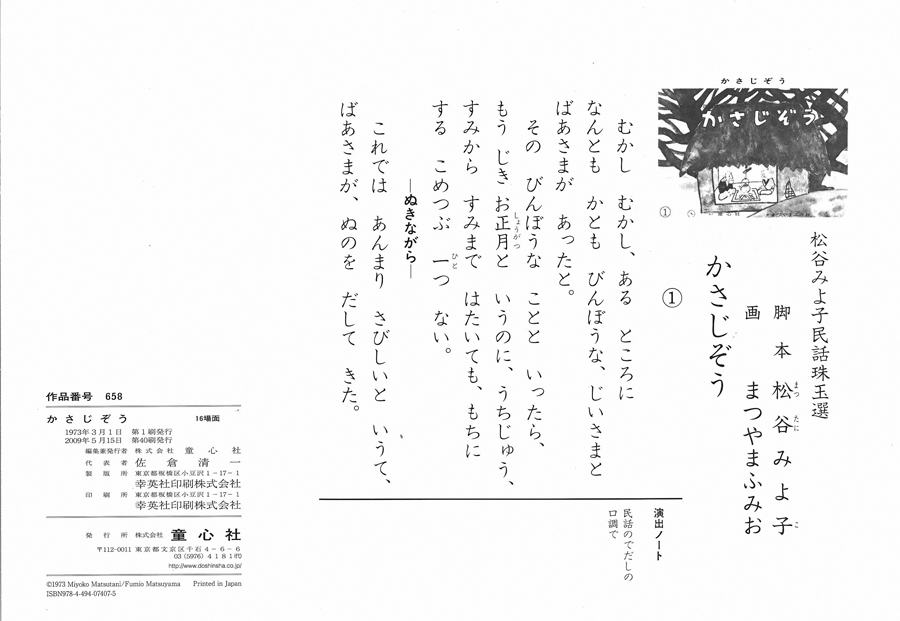 かさじぞう
かさじぞう
①
童心社
松谷みよ子民話珠玉選
脚本 松谷みよ子
まつ たに こ
画 まつやまふみお
かさじぞう
①
むかし むかし、ある ところに
なんとも かとも びんぼうな、じいさまと
ばあさまが あったと。
その びんぼうな ことと いったら、
もう じき お正月と いうのに、うちじゅう、
しょうがつ
すみから すみまで はたいても、もちに
する こめつぶ 一つ ない。
ひと
―ぬきながら―
これでは あんまり さびしいと いうて、
ばあさまが、ぬのを だして きた。
演出ノート
民話のでだしの
口調で
作品番号 658
かさじぞう 16場面
1973年3月1日 第1刷発行
2009年5月15日 第40刷発行
編集兼発行者 株式会社 童心社
代表者 佐倉清一
製版所 東京都板橋区小豆沢1-17-1
㈲幸英社印刷株式会社
印刷所 東京都板橋区小豆沢1-17-1
幸英社印刷株式会社
発行所 株式会社 童心社
〒112-0011 東京都文京区千石4-6-6
03(5976)4181㈹
http://www.doshinsha.co.jp/
©1973 Miyoko Matsutani/Fumio Matsuyama Printed in Japan
ISBN978-4-494-07407-5